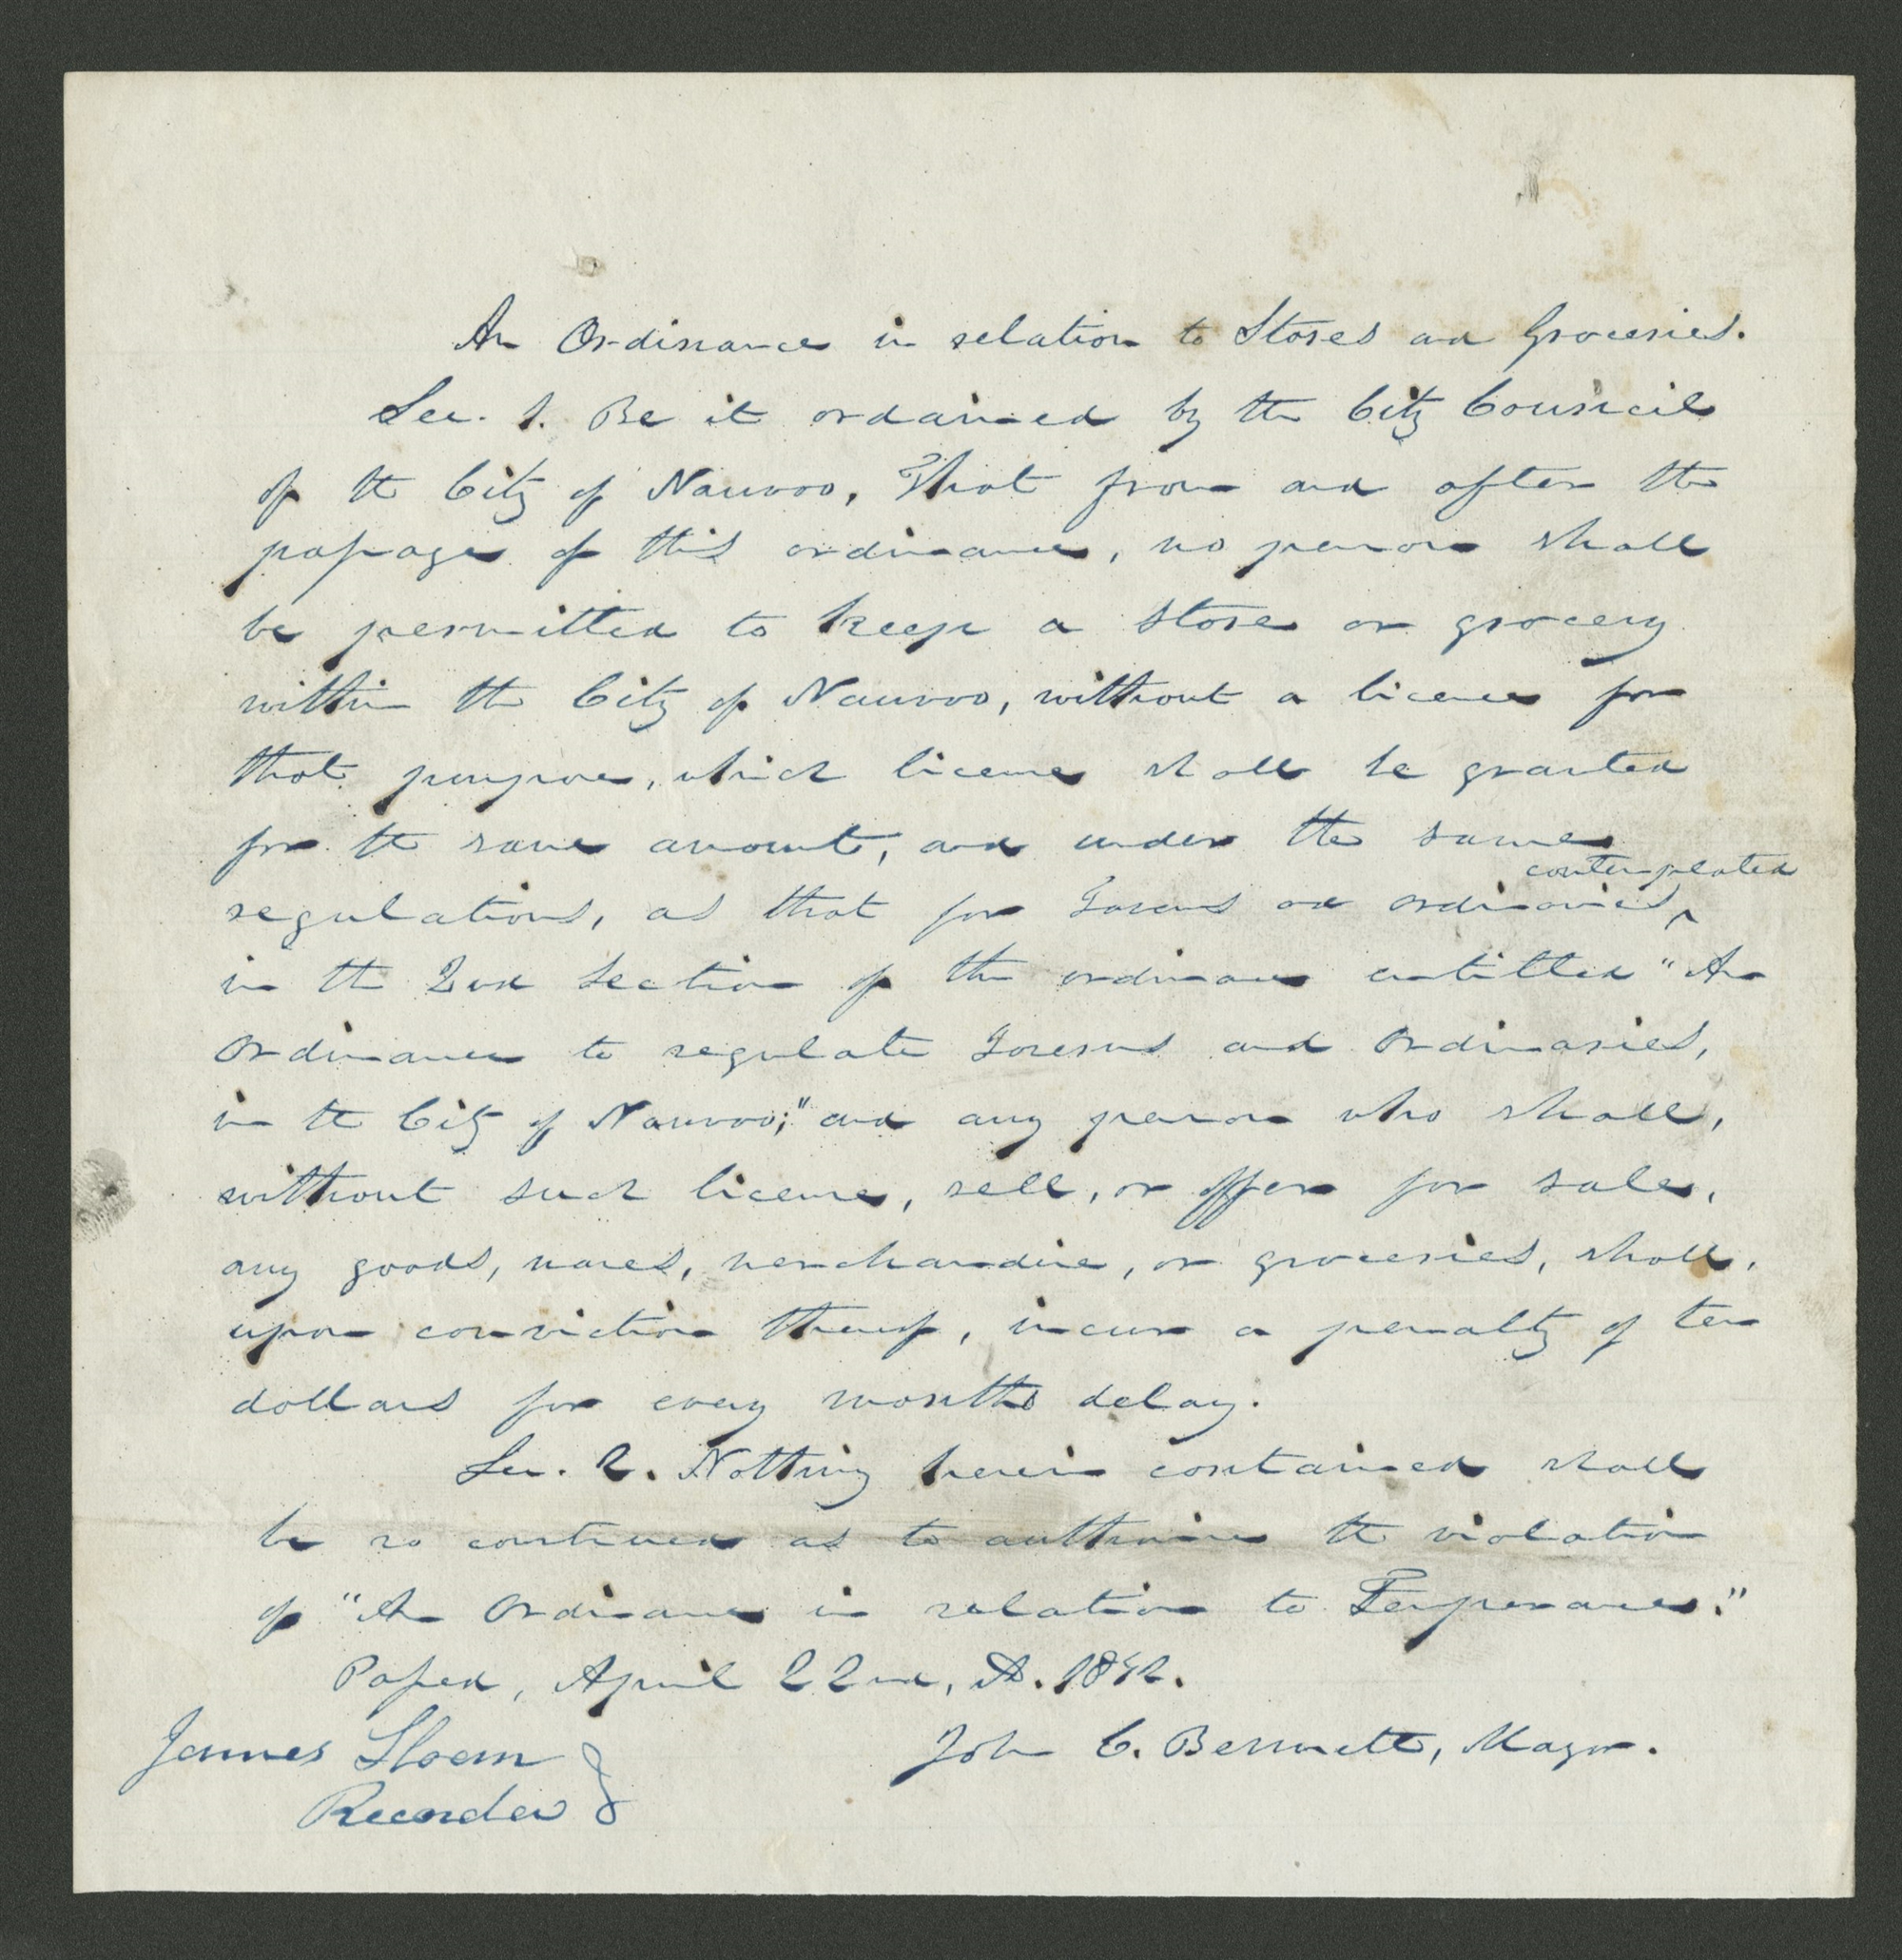 An Ordinance in relation to Stores and Groceries.
Sec. 1. Be it ordained by the City Council
of the City of Nauvoo, That from and after the
passage of this ordinance, no person shall
be permitted to keep a store or grocery
within the City of Nauvoo, without a license for
that purpose, which license shall be granted
for the same amount, and under the same
contemplated
regulations, as that for Taverns and ordinaries, ^
in the 2nd Section of the ordinance entitled "An
Ordinance to regulate Taverns and Ordinaries,
in the City of Nauvoo;" and any person who shall,
without such license, sell, or offer for sale,
any goods, wares, merchandise, or groceries, shall,
upon conviction thereof, incur a penalty of ten
dollars for every months delay.
Sec. 2. Nothing herein contained shall
be so construed as to authorise the violation
of "An Ordinance in relation to Temperance."
Passed, April 22nd, A.D. 1842.
James Sloan } John C. Bennett, Mayor.
Recorder